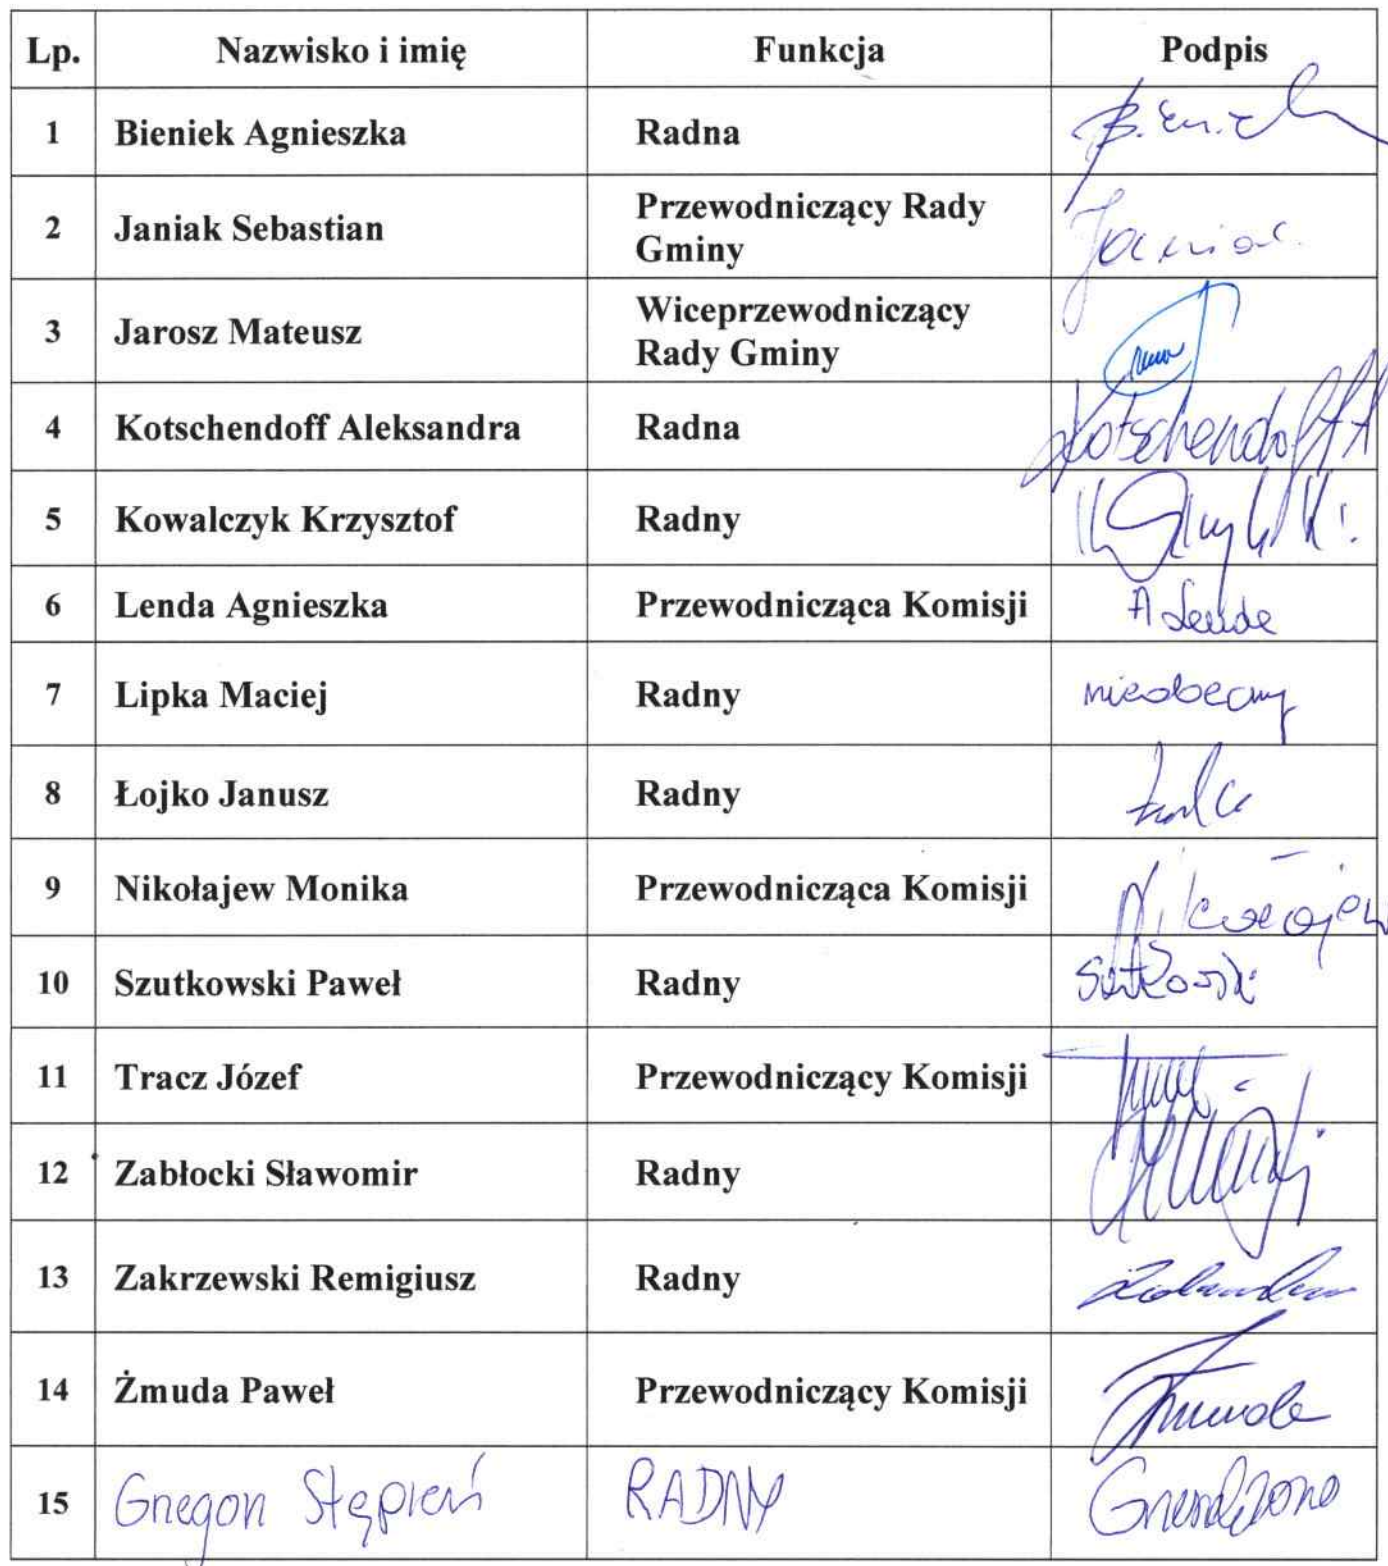 Lp. Nazwisko i imię Funkcja Podpis
1 Bieniek Agnieszka Radna
2 Janiak Sebastian Przewodniczący Rady
Gminy
3 Jarosz Mateusz Wiceprzewodniczący
Rady Gminy
4 Kotschendoff Aleksandra Radna Kotschendoff A
5 Kowalczyk Krzysztof Radny
6 Lenda Agnieszka Przewodnicząca Komisji A Lenda
7 Lipka Maciej Radny nieobecny
8 Łojko Janusz Radny
9 Nikołajew Monika Przewodnicząca Komisji Nikołajew
10 Szutkowski Paweł Radny
11 Tracz Józef Przewodniczący Komisji
12 Zabłocki Sławomir Radny
13 Zakrzewski Remigiusz Radny
14 Żmuda Paweł Przewodniczący Komisji Żmuda
15 Gregon Stępień RADNY